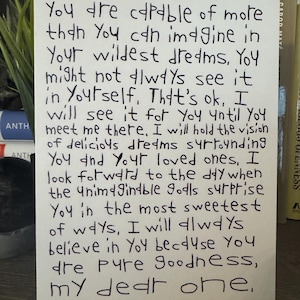 You are capable of more
than you can imagine in
your wildest dreams. You
might not always see it
in yourself. That's ok, I
will see it for you until you
meet me there. I will hold the vision
of delicious dreams surrounding
you and your loved ones. I
look forward to the day when
the unimaginable goals surprise
you in the most sweetest
of ways. I will always
believe in you because you
are pure goodness,
my dear one.
ANTH